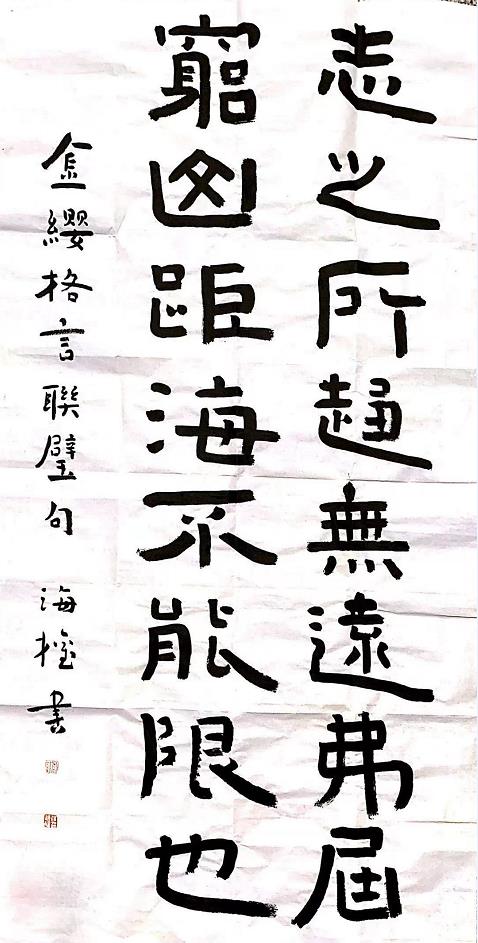 志之所趨無遠弗屆
窮山距海不能限也
金纓格言聯璧句 海書